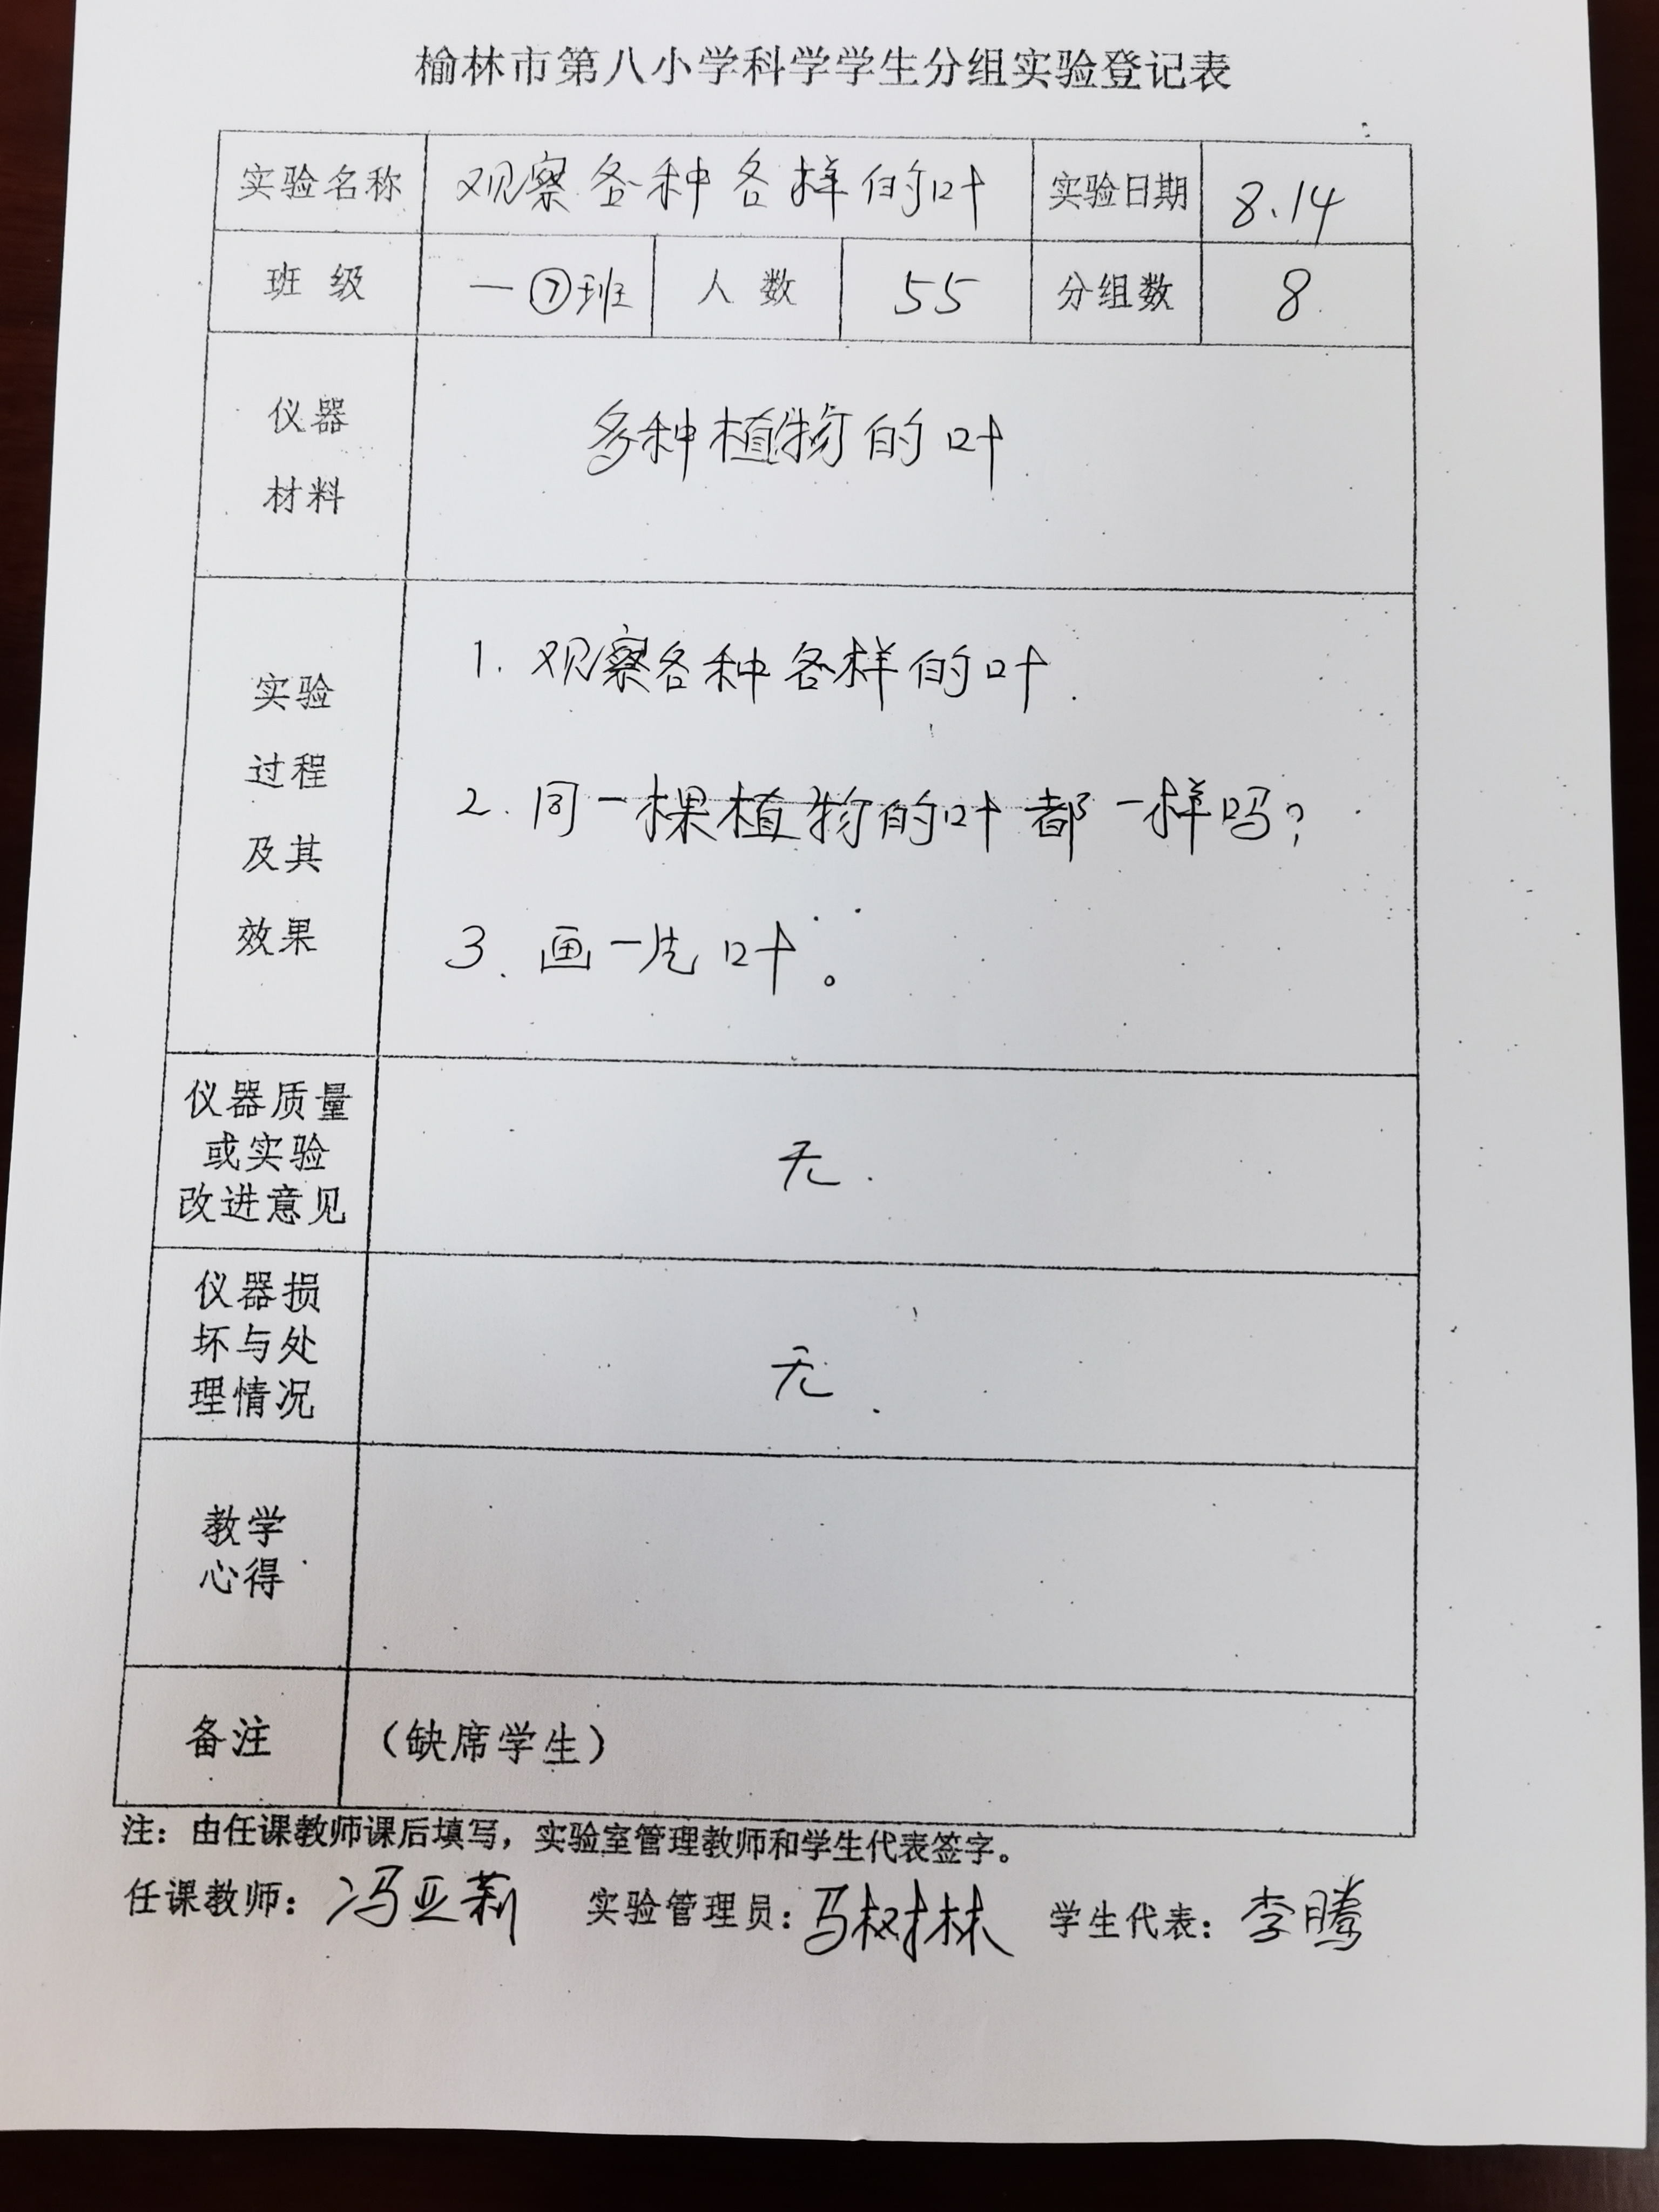 榆林市第八小学科学学生分组实验登记表
实验名称 观察各种各样的叶 实验日期 8.14
班 级 一⑦班 人 数 55 分组数 8
仪器
材料
多种植物的叶
实验
过程
及其
效果
1. 观察各种各样的叶.
2. 同一棵植物的叶都一样吗?
3. 画一片叶。
仪器质量
或实验
改进意见
无.
仪器损
坏与处
理情况
无.
教学
心得
备注 （缺席学生）
注：由任课教师课后填写，实验室管理教师和学生代表签字。
任课教师：冯亚莉 实验管理员：马树林 学生代表：李腾